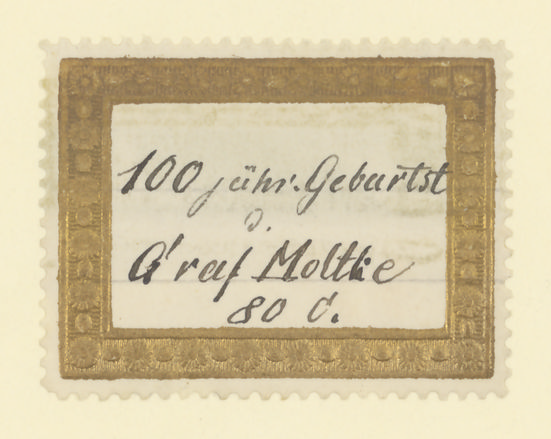 100 jähr. Geburtst
d.
Graf Moltke
80 C.